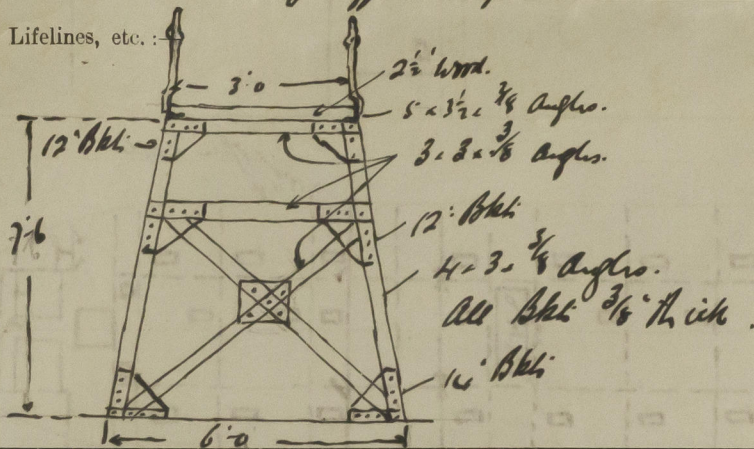 Lifelines, etc. :-
3'·0
2½" Wood.
5 × 3½ × 3/8 Angles.
12" Bkts
3 × 3 × 3/8 Angles.
12" Bkts
7'-6
4 × 3 × 3/8 Angles.
All Bkts 3/8" thick.
14" Bkts
6'·0